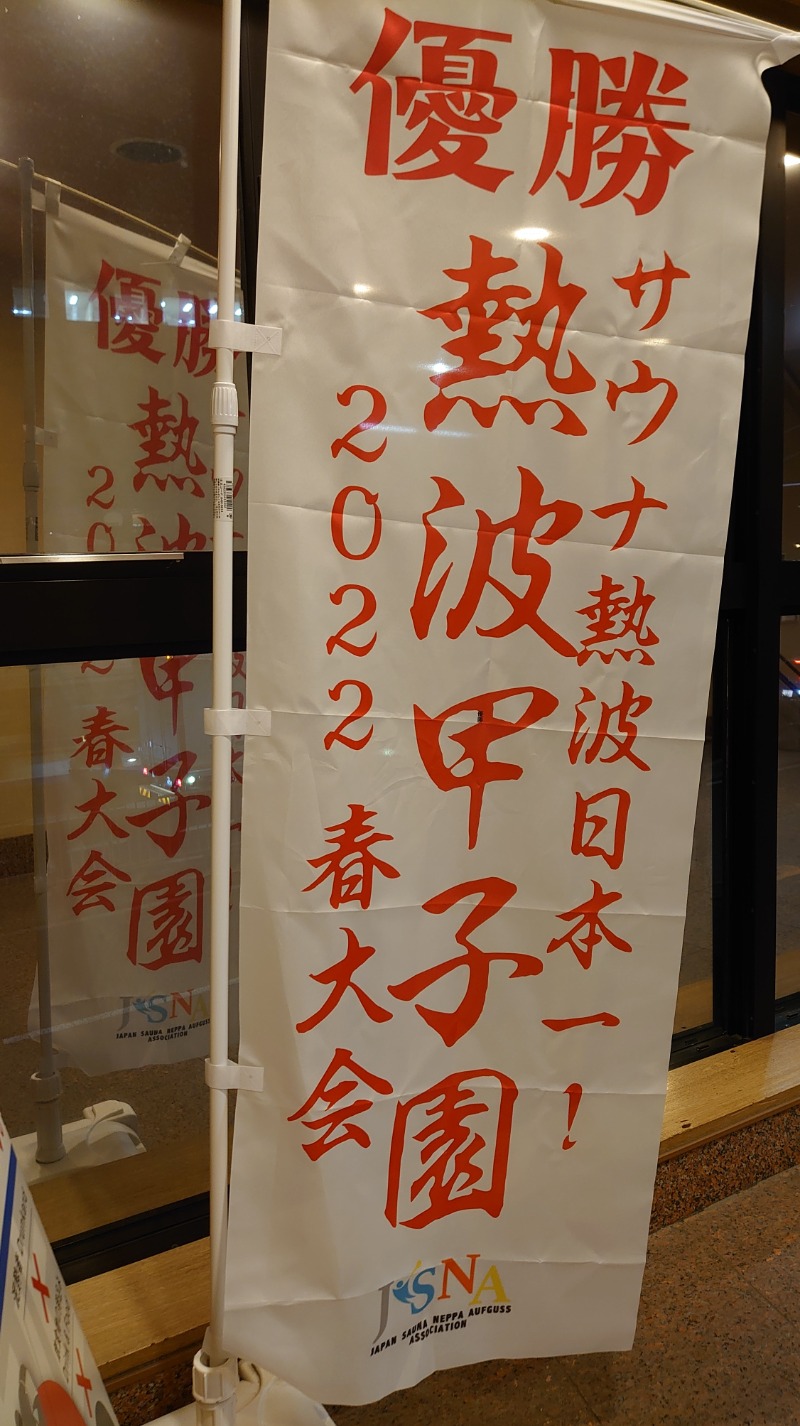 優勝
サウナ熱波日本一!
熱波甲子園
2022春大会
JSNA
JAPAN SAUNA NEPPA AUFGUSS
ASSOCIATION